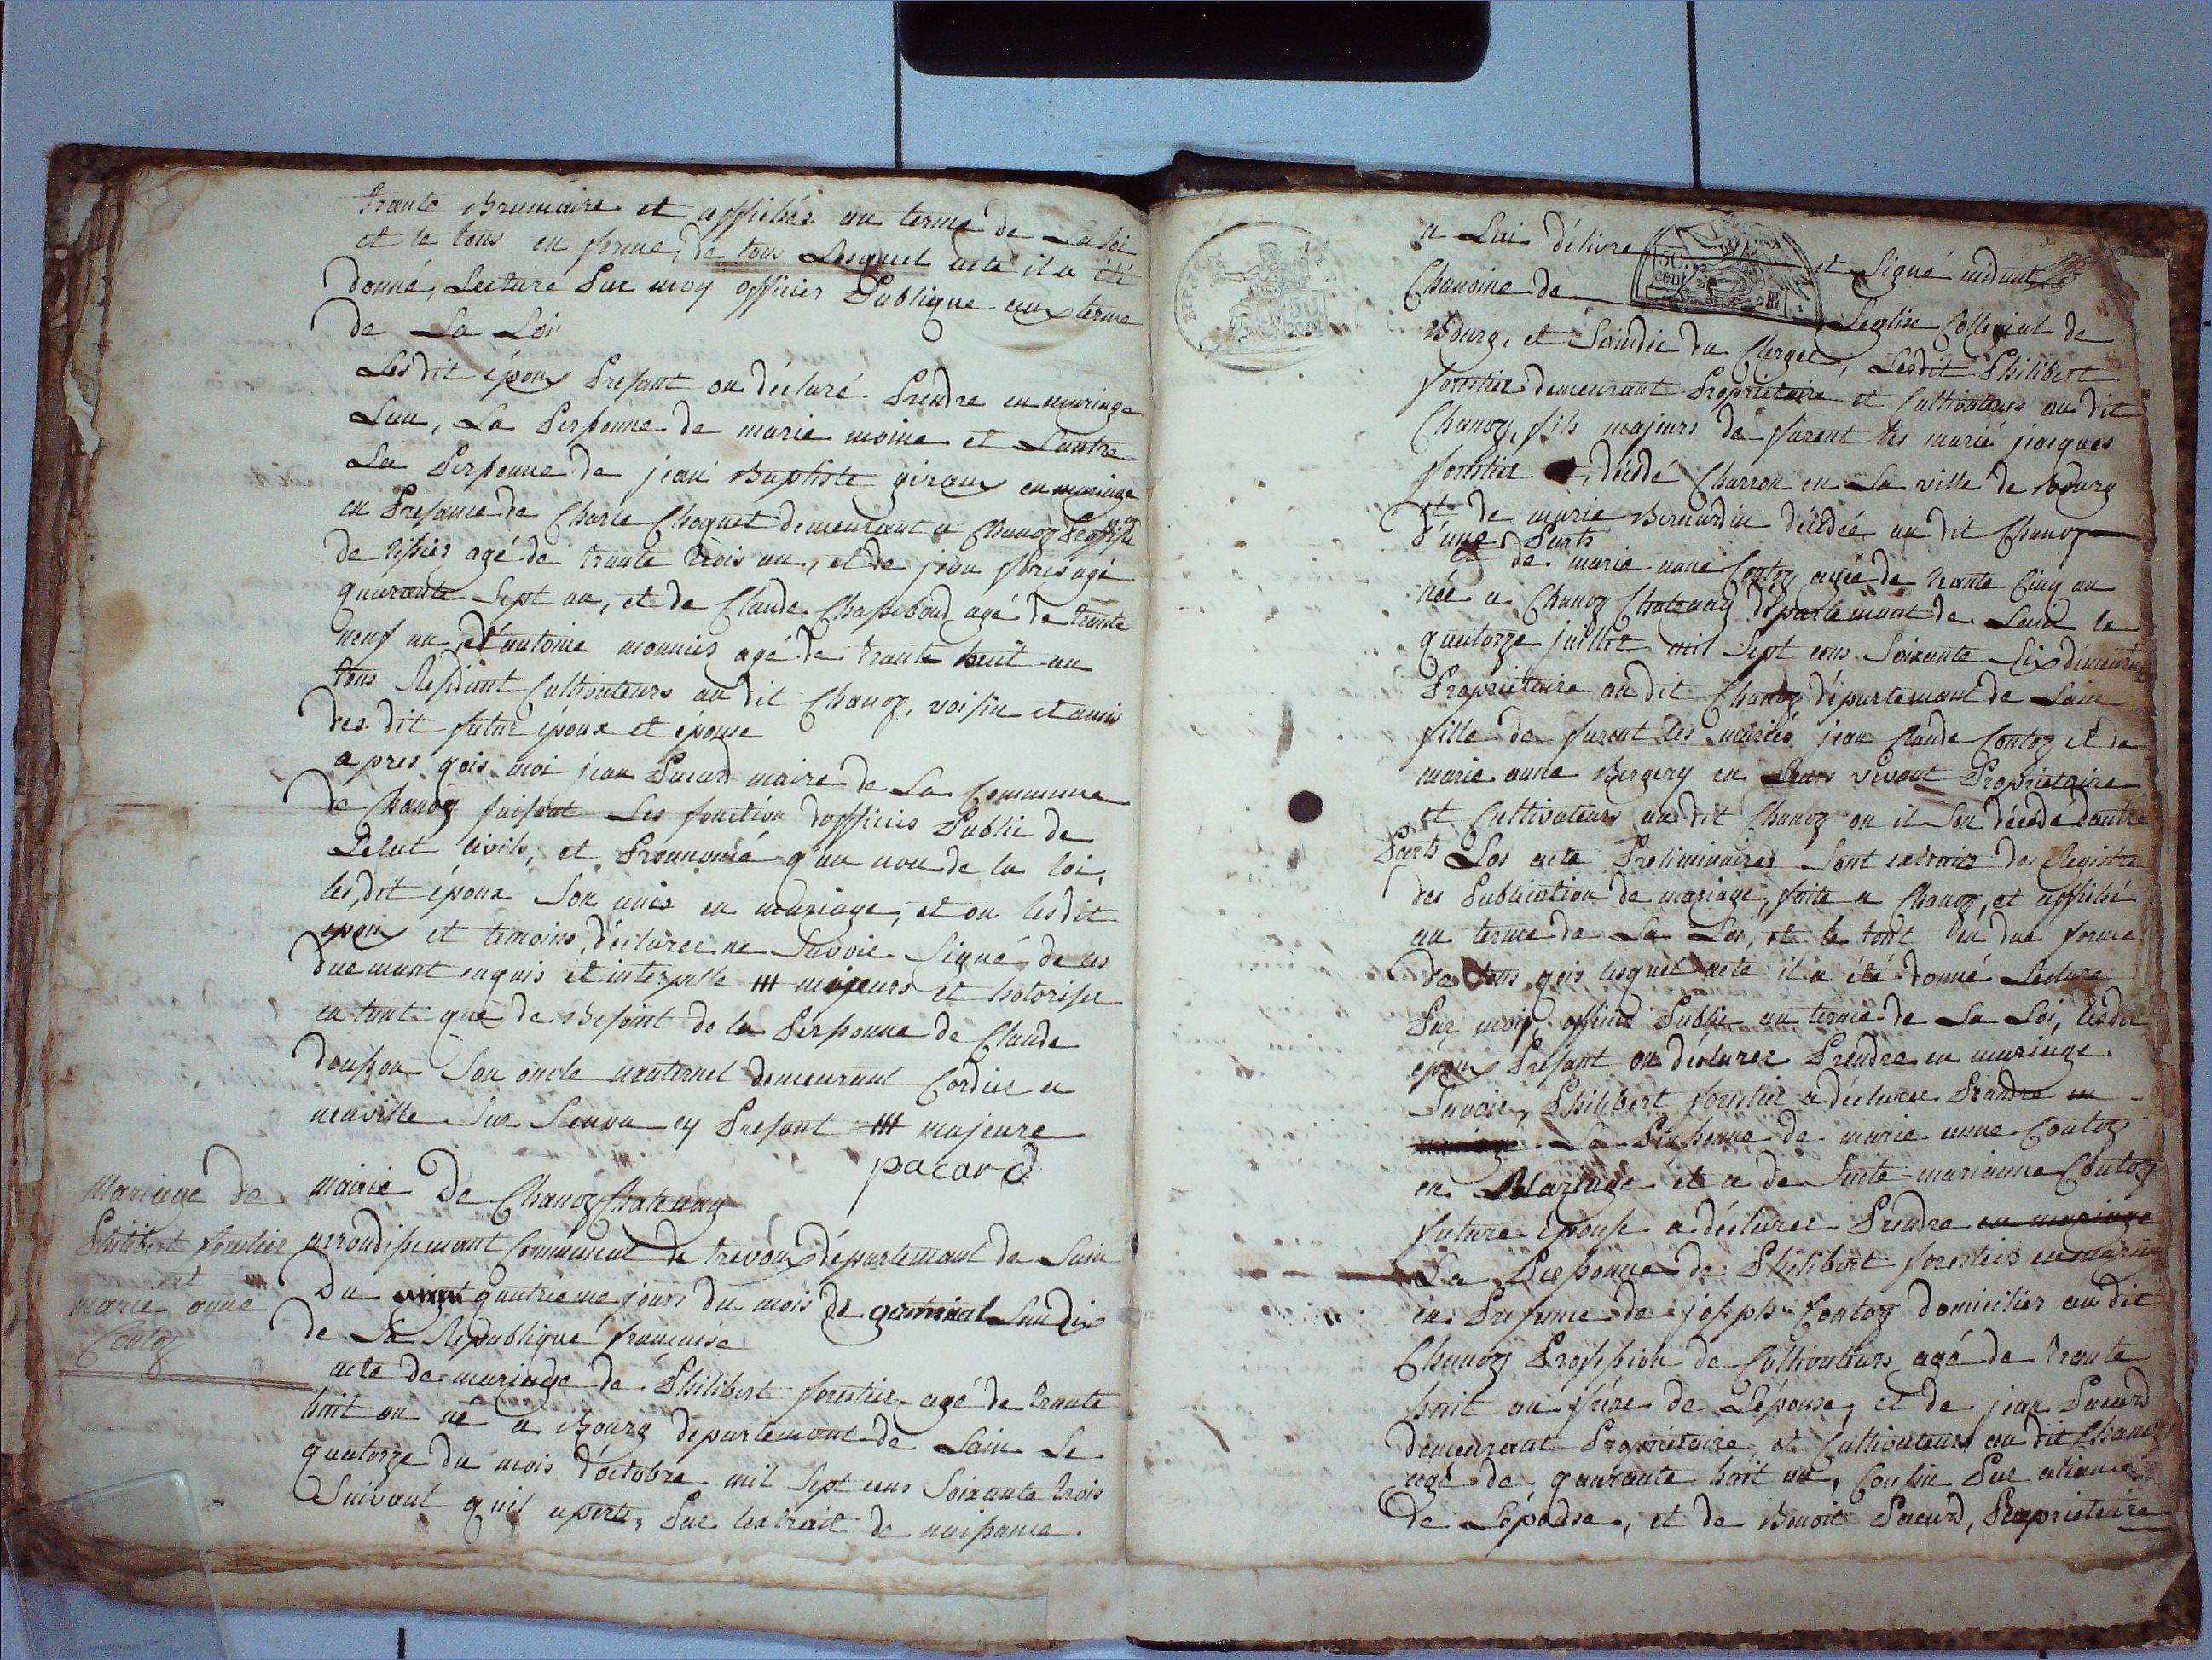 trante Brumaire et affichés au terme de La loi
et le tous en forme, de tous Lesquel acte il a été
donné, Lecture Par moy officier Publique aux terme
de La Loi
Lesdit époux Presant on déclaré Prendre en mariage
Lun, La Personne de marie moine et L'autre
La Personne de jean Baptiste giraux en mariage
en Presance de Charle Choquet demeurant a Chanoz Proffssion
de tissier agé de trante trois an, et de jean agé
quarante Sept an, et de Claude Chassiboud agé de trante
neuf an, et d'antoine monnier agé de trante huit an
tous Residant Cultivateurs au dit Chanoz, voisin et amis
des dit futur époux et épouse
apres qois moi jean Pacard maire de La Commune
de Chanoz faisant Les fonction d'officier Public de
Letat civils, et Prononcé q'au nom de la loi,
les dit époux Son unis en mariage, et on lesdit
epoux et temoins, déclarer ne Savoir Signé de ce
duemant enquis et interpellé majeurs et hotorisée
en tant que de Besoint de la Personne de Claude
donsson Son oncle maternel demeurant Cordier a
neuville Sur Renon cy Presant majeure
pacard
Mariage de
Philibert forestier
et
marie anne
Contoz
mairie De Chanoz Chatenay
arrondissemant Communal de trevoux département de Lain
Du quatrieme jours du mois de germinal Lan dix
de La Republique française
acte de mariage de Philibert forestier agé de trante
huit an né a Bourg departemant de Lain Le
quatorze du mois d'octobre mil Sept cens Soixante trois
Suivant quil aperts, Par lextrait de naissance
a Lui délivré et Signé
Chanoine de Leglise Collegial de
Bourg, et Saindic du Clergee, Lesdit Philibert
forestier demeurant Proprietaire et Cultivateurs au dit
Chanoz, fils majeurs de furent les marié jacques
forestier décédé Charron en La ville de Bourg
et de marie Bernardin décédée au dit Chanoz
d'une Parts
et de marie anne Contoz agée de trante Cinq an
née a Chanoz Chatenay departemant de Lain le
quatorze juillet mil Sept cens Soixante Six demeurant
Propriétaire au dit Chanoz départemant de Lain
fille de furent les mariés jean Claude Contoz et de
marie anne Bergery en Leurs vivant Proprietaire
et Cultivateurs au dit Chanoz ou il Son décédé d'autre
Parts Les acte Preliminaires Sont extraits des Registre
des Publication de mariage, faite a Chanoz, et affiché
au terme de La Loi, et le tout en due forme
de tous qois lesquel acte il a été donné Lecture
Par moi, officier Public au terme de La Loi, lesdit
epoux Presant on déclarer Prendre en mariage
Savoir, Philibert forestier a déclarer Prandre en
mariage La Personne de marie anne Contoz
en Mariage et a de Suite marianne Contoz
future épouse a déclarer Prendre en mariage
La Personne de Philibert forestier en mariage
en Presance de joseph Contoz domicilier au dit
Chanoz Proffssion de Cultivateurs agé de trante
huit an frére de Lépouse, et de jean Pacard
demeurant Proprietaire et Cultivateurs au dit Chanoz
agé de quarante huit an, Cousin Par aliance
de Lépouse, et de Benoit Pacard, Proprietaire